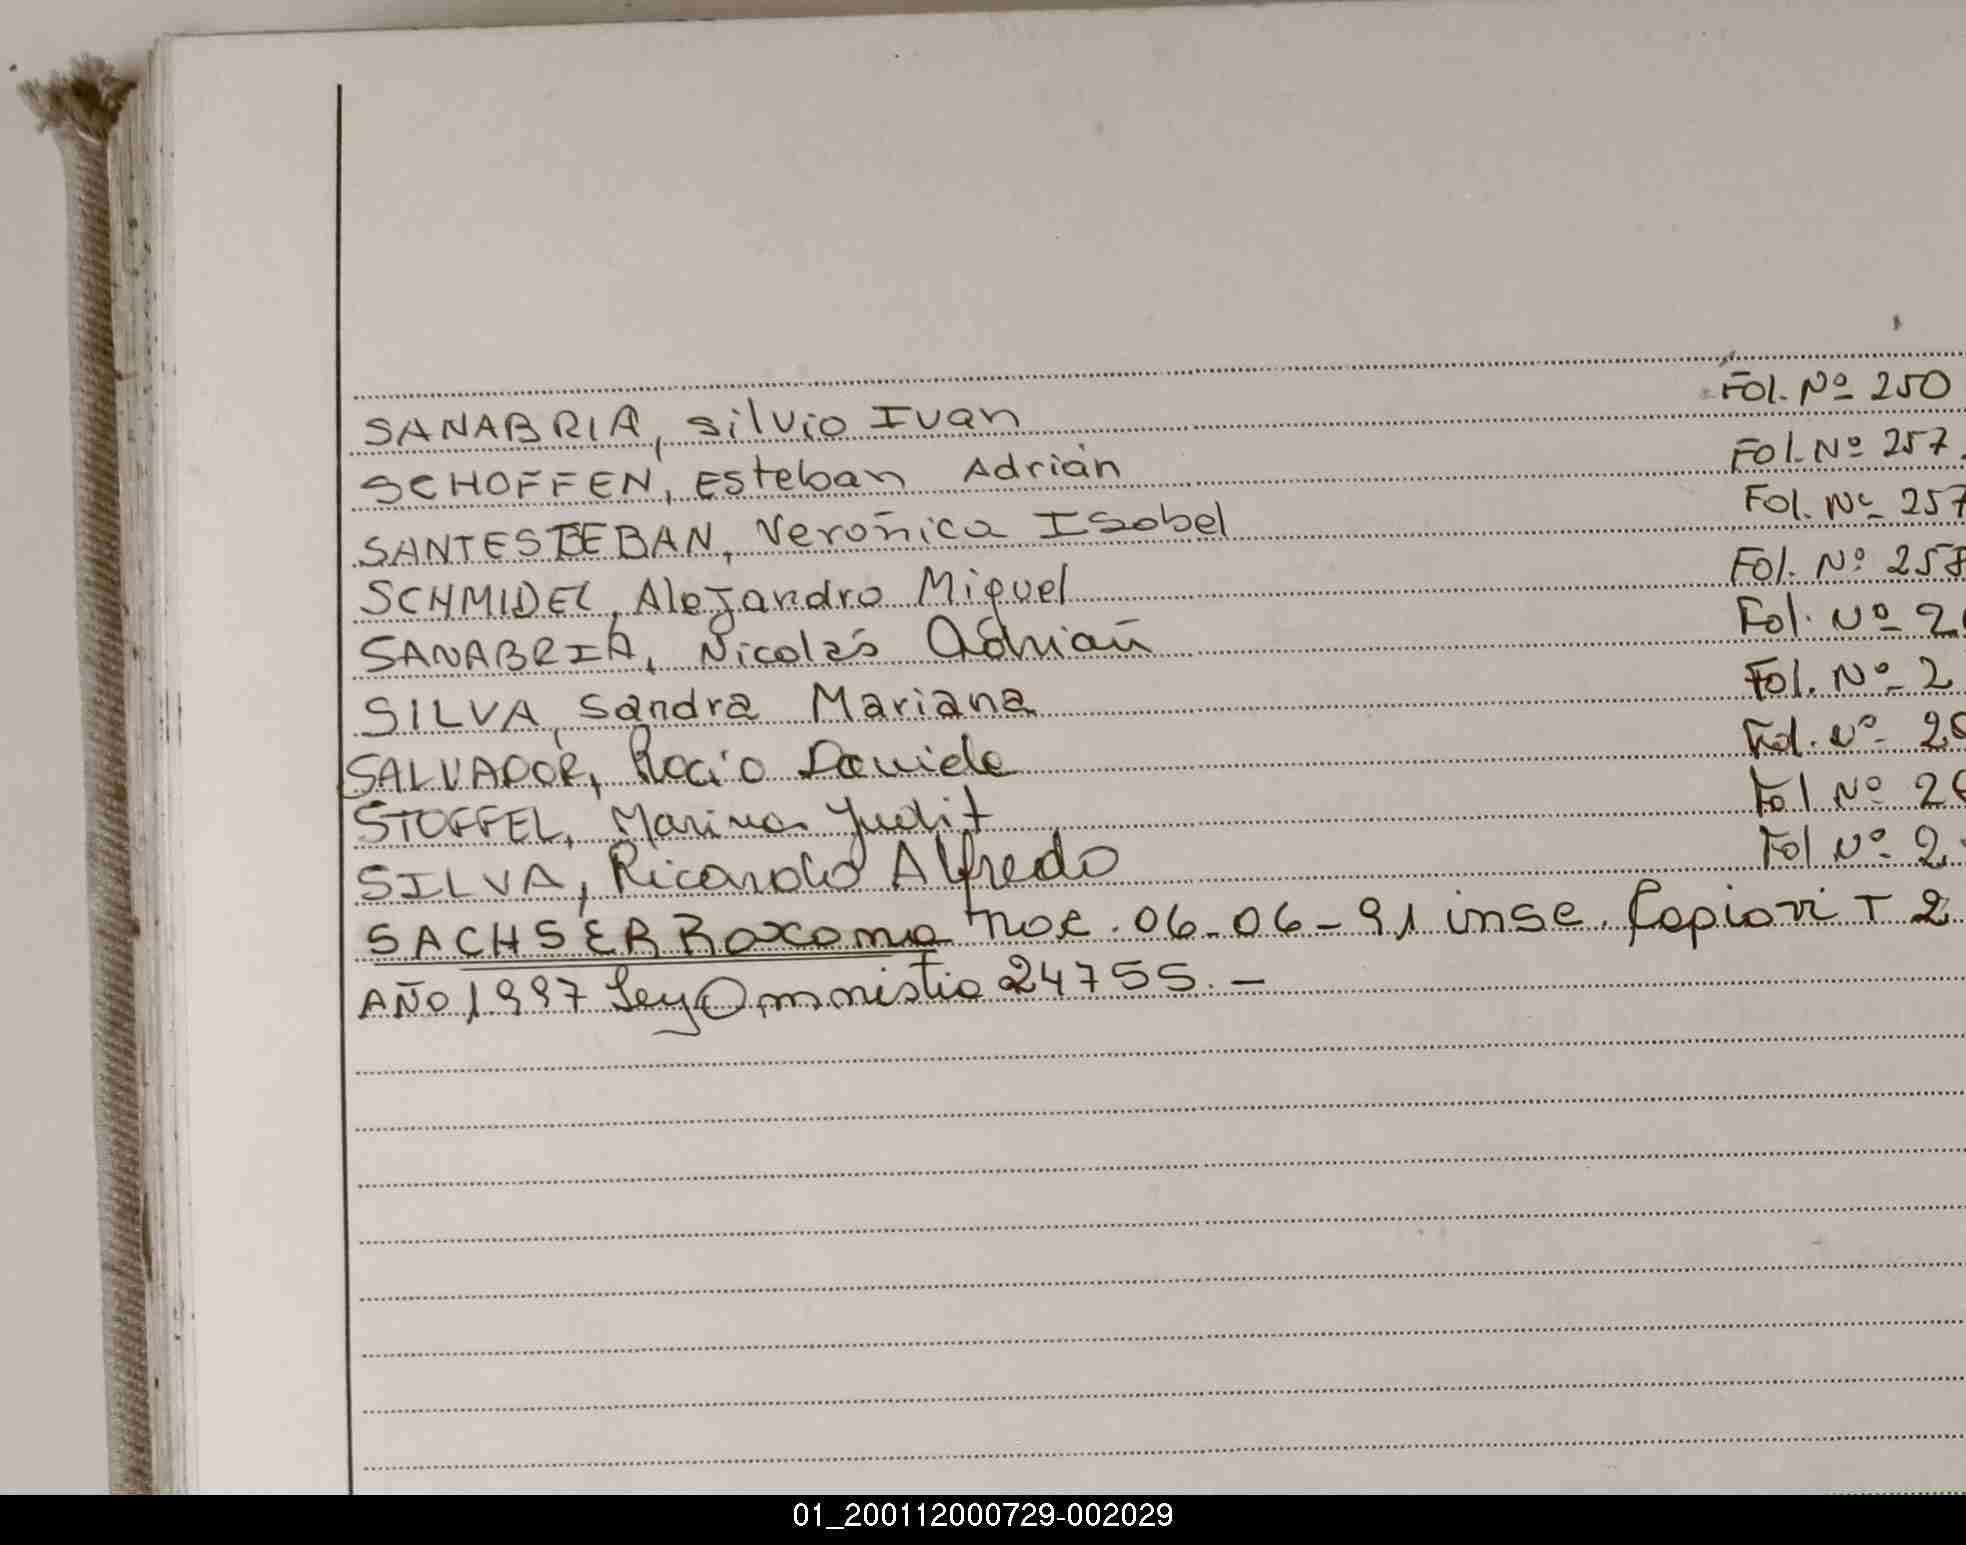 SANABRIA, Silvio Ivan Fol. Nº 250
SCHOFFEN, Esteban Adrián Fol. Nº 257
SANTESTEBAN, Verónica Isabel Fol. Nº 257
SCHMIDEL, Alejandro Miguel Fol. Nº 258
SANABRIA, Nicolás Adrián Fol. Nº 2
SILVA, Sandra Mariana Fol. Nº 2
SALVADOR, Rocío Daniela Fol. Nº 26
STOFFEL, Marina Judit Fol Nº 26
SILVA, Ricardo Alfredo Fol Nº 2
SACHSER Roxana nac. 06-06-91 insc. T 2
AÑO 1997 Ley Amnistia 24755.-
01_200112000729-002029